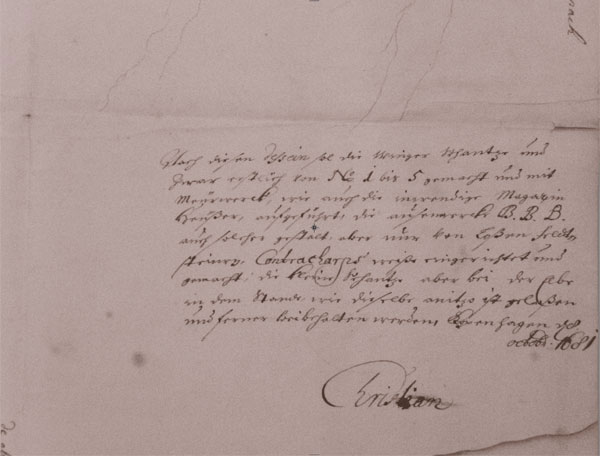 Nach diesen Dessein sol die Veringer Schantze und
zwar erstlich von No 1 bis 5 gemacht und mit
Maurwerck, wie auch die inwendige Magazin
Heüser, aufgeführt, die außenwerck B. B. B.
auch solcher gestalt, aber nur von losen Feldt
steinen, Contracharps weise eingerichtet und
gemacht, die kleine Schantze aber bei der Elbe
in dem Stande, wie dieselbe anitzo ist gelaßen
und ferner beibehalten werden Copenhagen d 8
octob: 1681
Christian